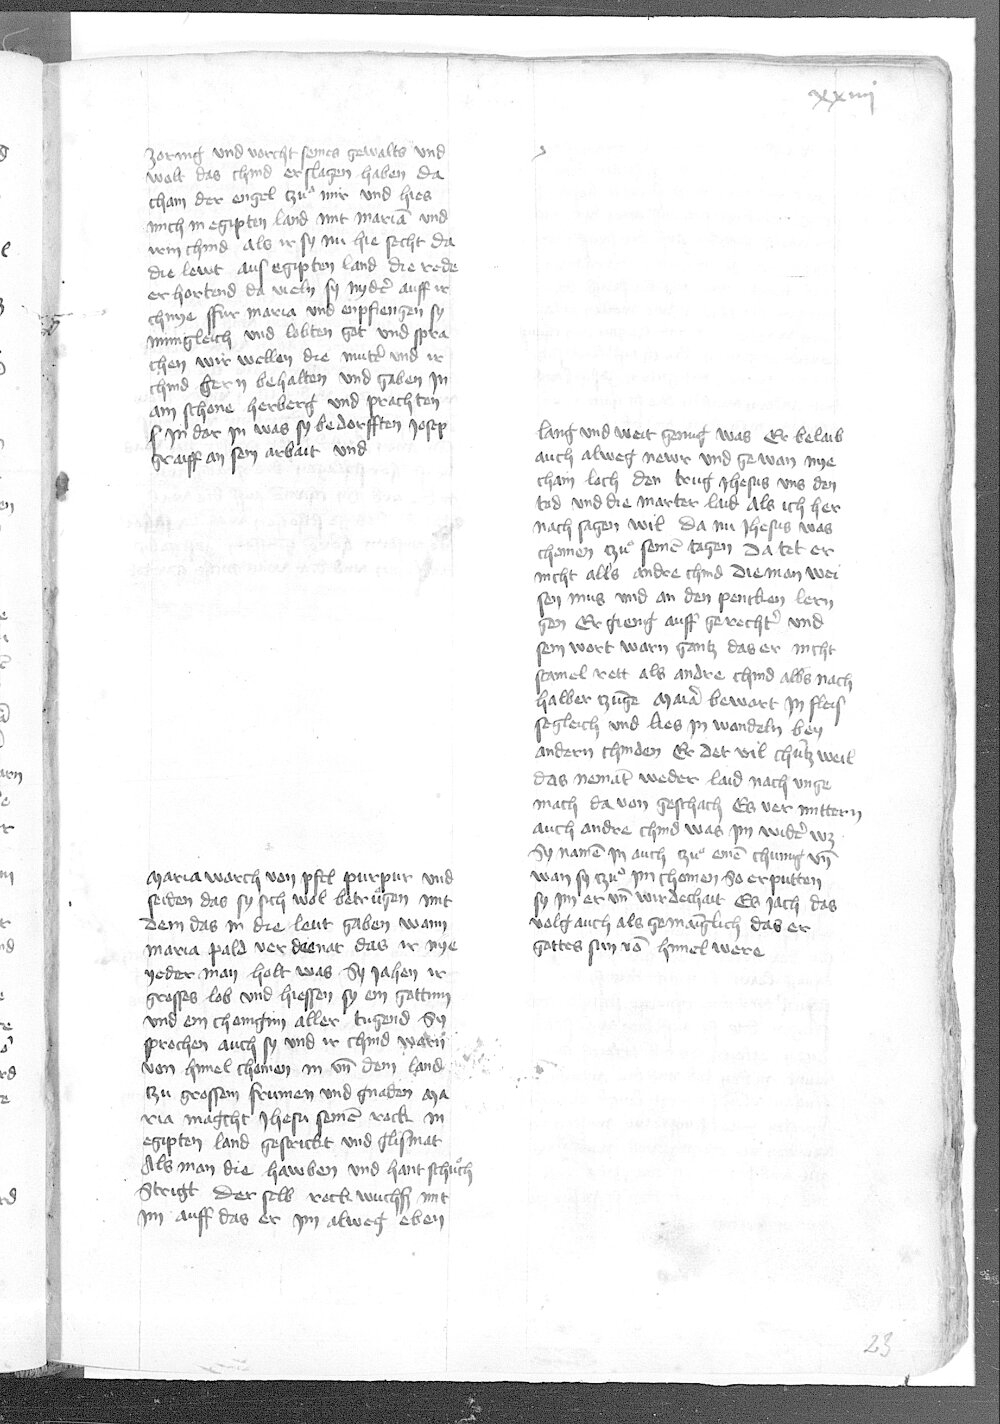 xxiiij
zornig und vorcht seines gewalts und
wolt das chind erslagen haben da
cham der engel czuͦ mir und hies
mich in egipten land mit mariā und
irm chind als ir sy nu hie secht da
die lewt aus egipten land die rede
erhortend da vieln sy nyd̄ auff ir
chnye ffur maria und enpfiengen sy
innigleich und lobten got und spra
chen wir wellen die mut̄ und ir
chind gern behalten und gaben in
ain schone herberg und prachten
in dar in was sy bedorfften Josep
graiff an sein arbait und
Maria warch von pfel purpur und
seiden das sy sich wol betrugen mit
dem das in die leut gaben wann
maria pald verdienat das ir nye
yeder man holt was Sy jahen ir
grosses lob und hiessen sy ein gottinn
und ein chonigin aller tugend Sy
sprechen auch sy und ir chind warn
von himel chomen in vn̄ dem land
czu grossem frumen und gnaden Ma
ria macht Jhesu seinē rock in
egipten land gestrickt und glismat
Als man die hawben und hantschuͦch
Strigt Der selb rock wuchss mit
im auff das er im alweg eben
lang und weit genug was Er belaib
auch alweg newr und gewan nye
chain loch den trug Jhesus uns den
tod und die marter laid Als ich her
nach sagen wil Da nu Jhesus was
chomen czuͦ seinē tagen Da tet er
nicht alls andre chind Die man wei
sen mus und an den pencken lern
gen Er gieng auff gerecht̄ und
sein wort warn gantz das er nicht
stamel rett als andre chind albs nach
halber czunge Maria bewart in fleis
segleich und lies in wandeln bey
andern chinden Er Det vil churtzweil
das nemāt weder laid nach unge
mach da von geschach Es ver mittern
auch andre chind was im wid̄ wz
Sy namē in auch czuͦ einē chunig vn̄
wan sy czuͦ im chomen So erputten
sy im er vn̄ wirdechait Es jach das
volg auch als gemaingleich das er
gottes sun vō himel were
23